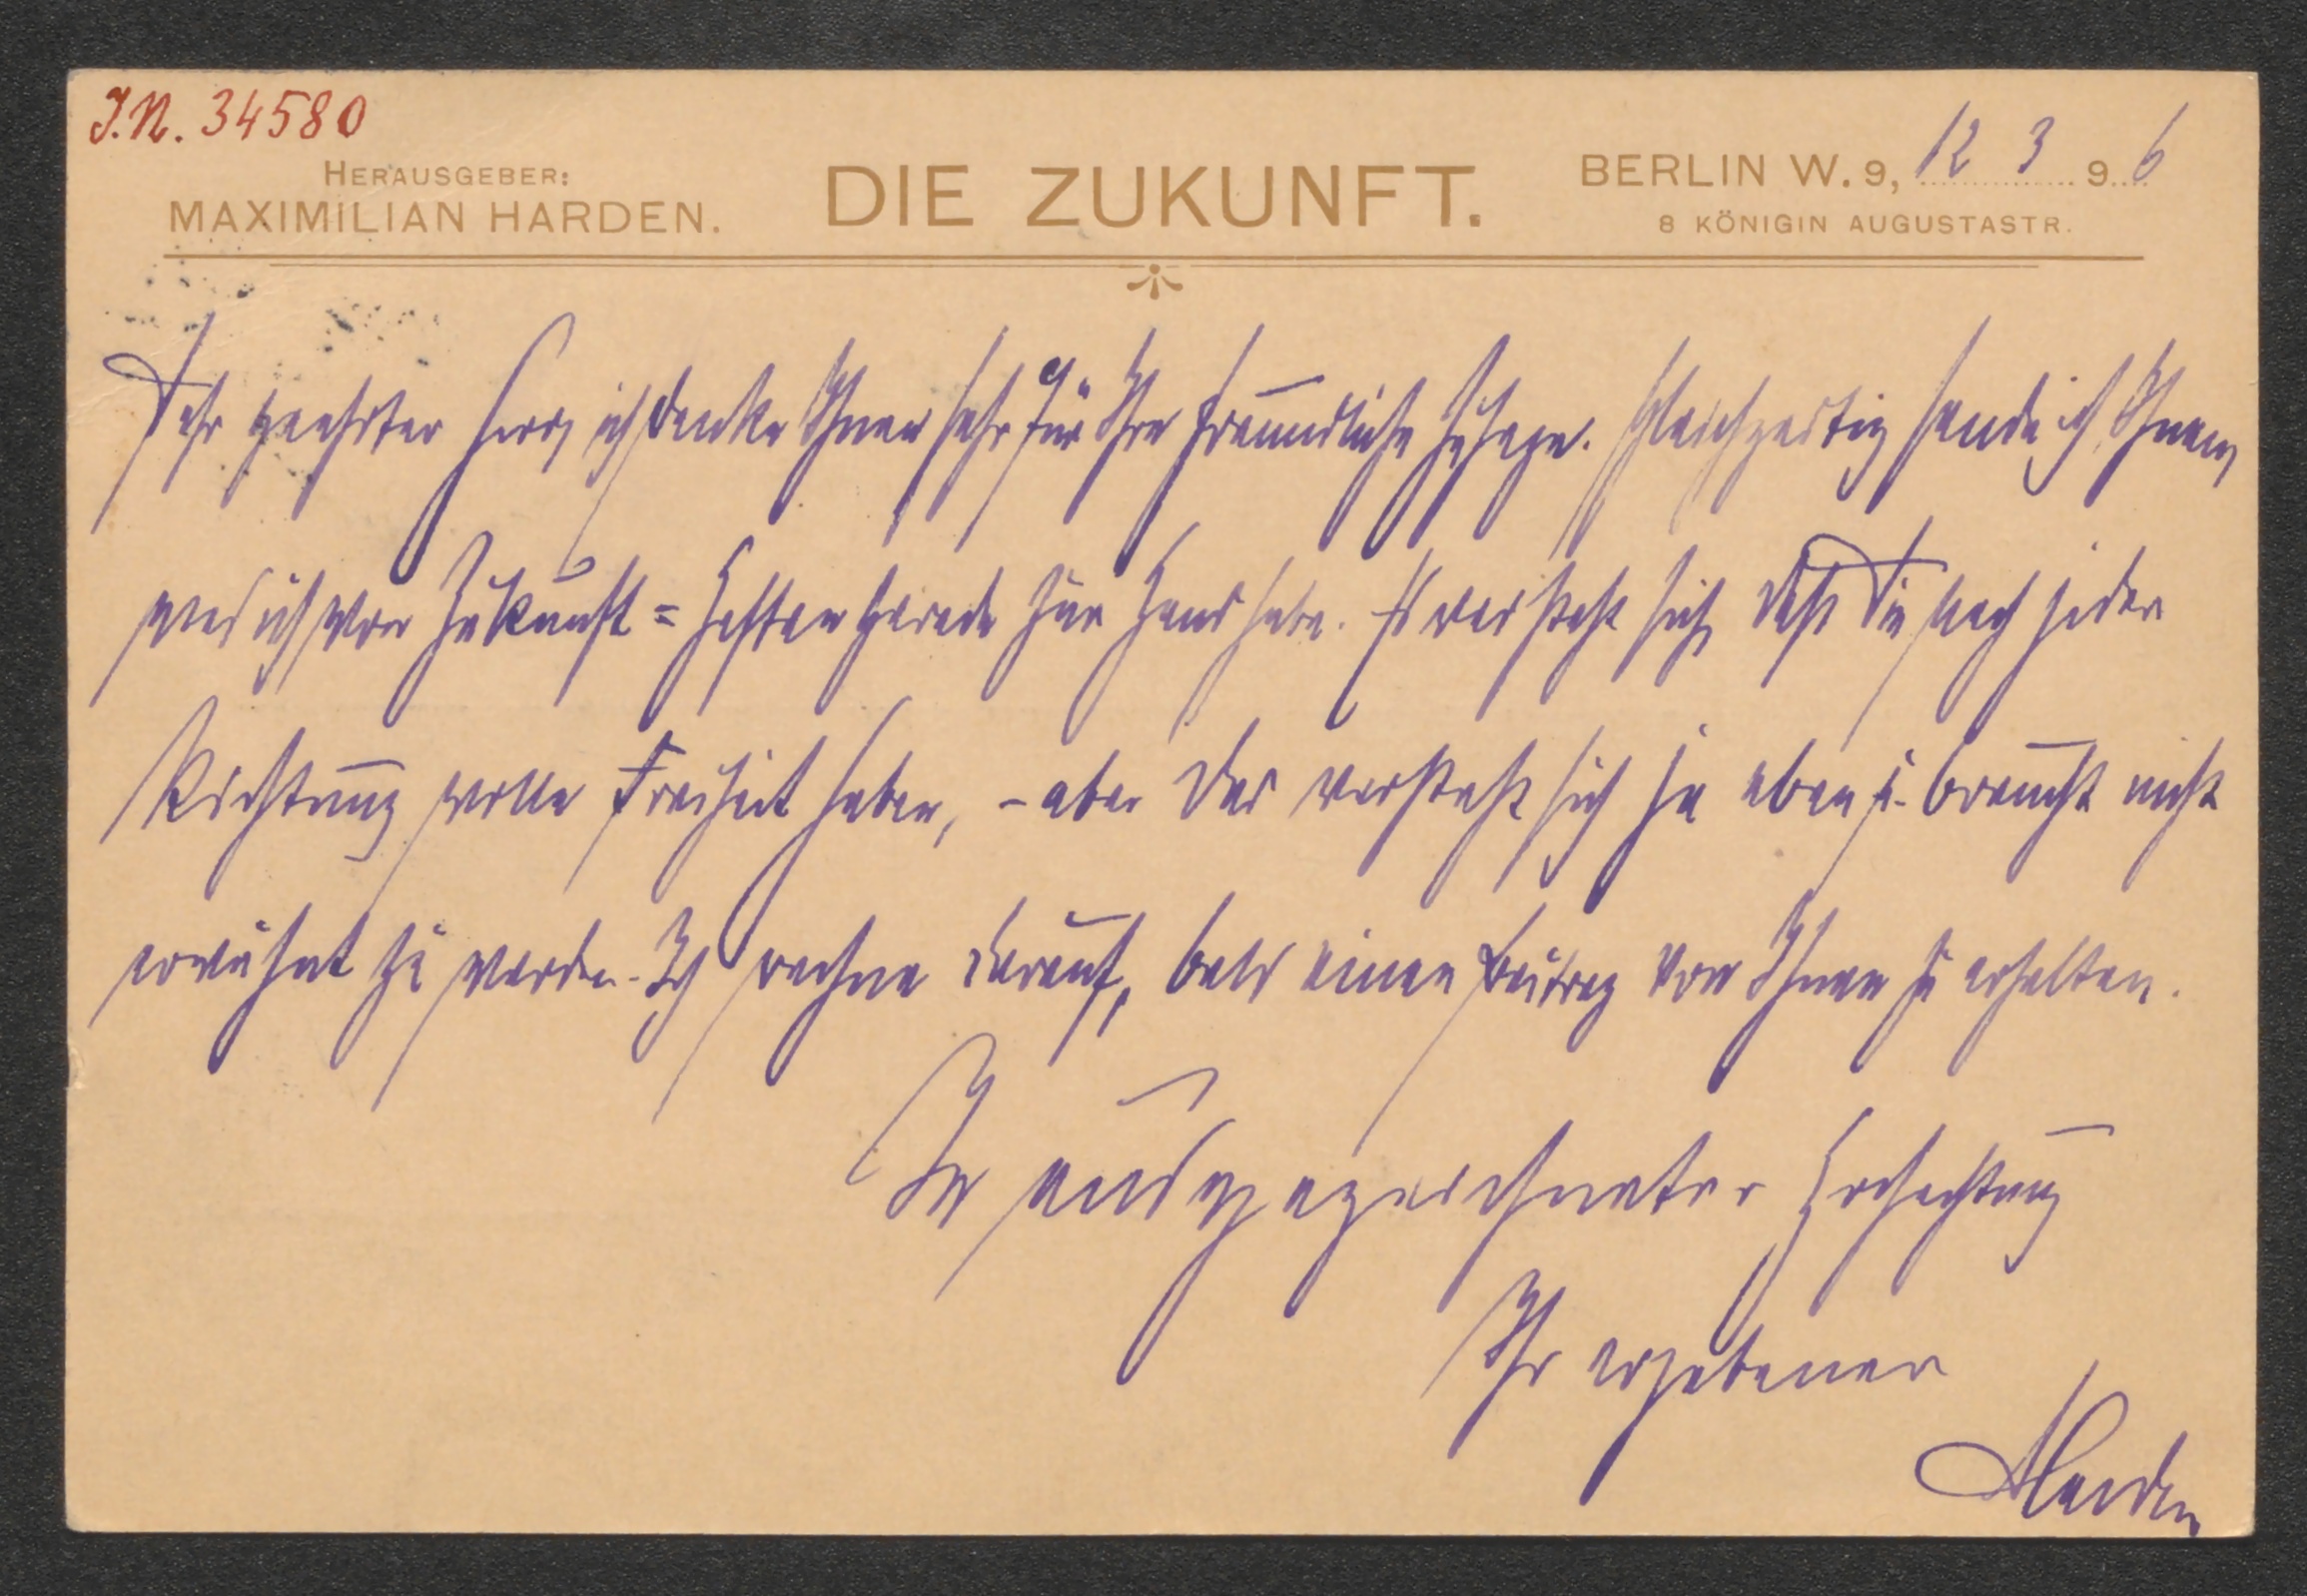 J.N. 34580
HERAUSGEBER:
MAXIMILIAN HARDEN.
DIE ZUKUNFT.
BERLIN W. 9, 12 3 96
8 KÖNIGIN AUGUSTASTR.
Sehr geehrter Herr, ich danke Ihnen sehr für Ihre freundliche Zusage. Gleichzeitig sende ich Ihnen,
was ich von Zukunft=Heften gerade zur Hand habe. Es versteht sich, daß Sie nach jeder
Richtung volle Freiheit haben, – aber das versteht sich ja eben u. braucht nicht
erwähnt zu werden. Ich rechne darauf, bald einen Beitrag von Ihnen zu erhalten.
In ausgezeichneter Hochachtung
Ihr ergebener
Harden